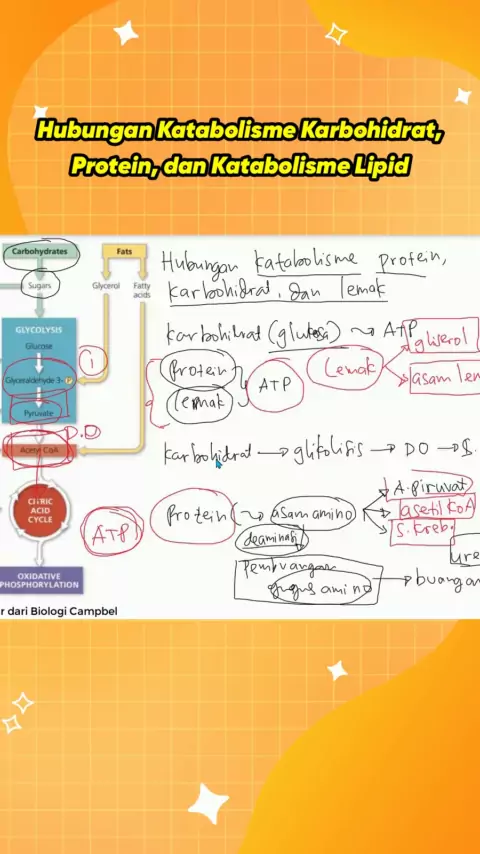 Hubungan Katabolisme Karbohidrat,
Protein, dan Katabolisme Lipid
Carbohydrates
Fats
Sugars
Glycerol
Fatty
acids
GLYCOLYSIS
Glucose
Glyceraldehyde 3- P
Pyruvate
Acetyl CoA
CITRIC
ACID
CYCLE
OXIDATIVE
PHOSPHORYLATION
r dari Biologi Campbel
Hubungan katabolisme protein,
karbohidrat, dan lemak
karbohidrat (glukosa) → ATP
Protein
lemak
ATP
Lemak
gliserol
asam lem
1
D.O
karbohidrat → glikolisis → DO → S.
ATP
Protein → asam amino
A. piruvat
asetil KoA
S. Kreb.
deaminasi
Pembuangan
gugus amino → buangan
ure